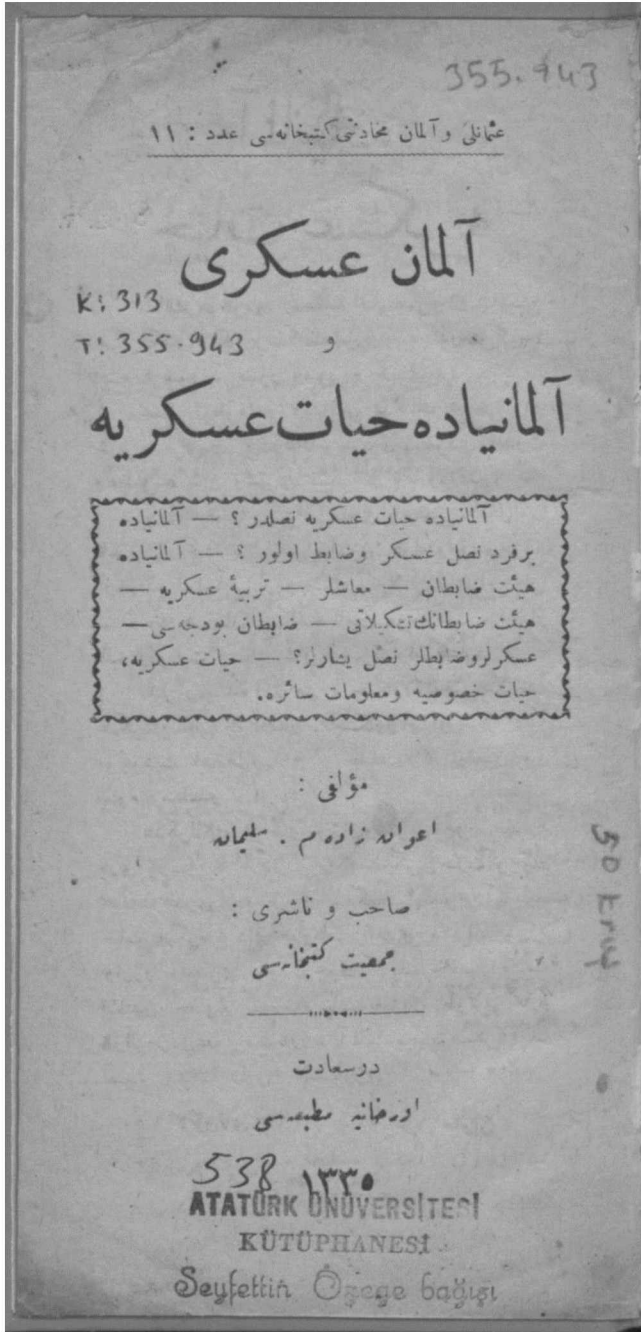 355.943
عثمانلی و آلمان مخادنتی کتبخانه‌سی عدد : ١١
آلمان عسکری
K: 313
T: 355.943
و
آلمانیاده حیات عسکریه
آلمانیاده حیات عسکریه نصلدر ؟ — آلمانیاده
برفرد نصل عسکر وضابط اولور ؟ — آلمانیاده
هیئت ضابطان — معاشلر — تربیهٔ عسکریه —
هیئت ضابطانك تشکیلاتی — ضابطان بودجه‌سی —
عسکرلر وضابطلر نصل یشارلر؟ — حیات عسکریه،
حیات خصوصیه ومعلومات سائره.
مؤلفی :
اعوان زاده م . سلیمان
صاحب و ناشری :
جمعیت کتبخانه‌سی
درسعادت
اورخانیه مطبعه‌سی
538 ١٣٣٥
ATATÜRK ÜNÜVERSİTESİ
KÜTÜPHANESİ
Seyfettin Özege bağışı